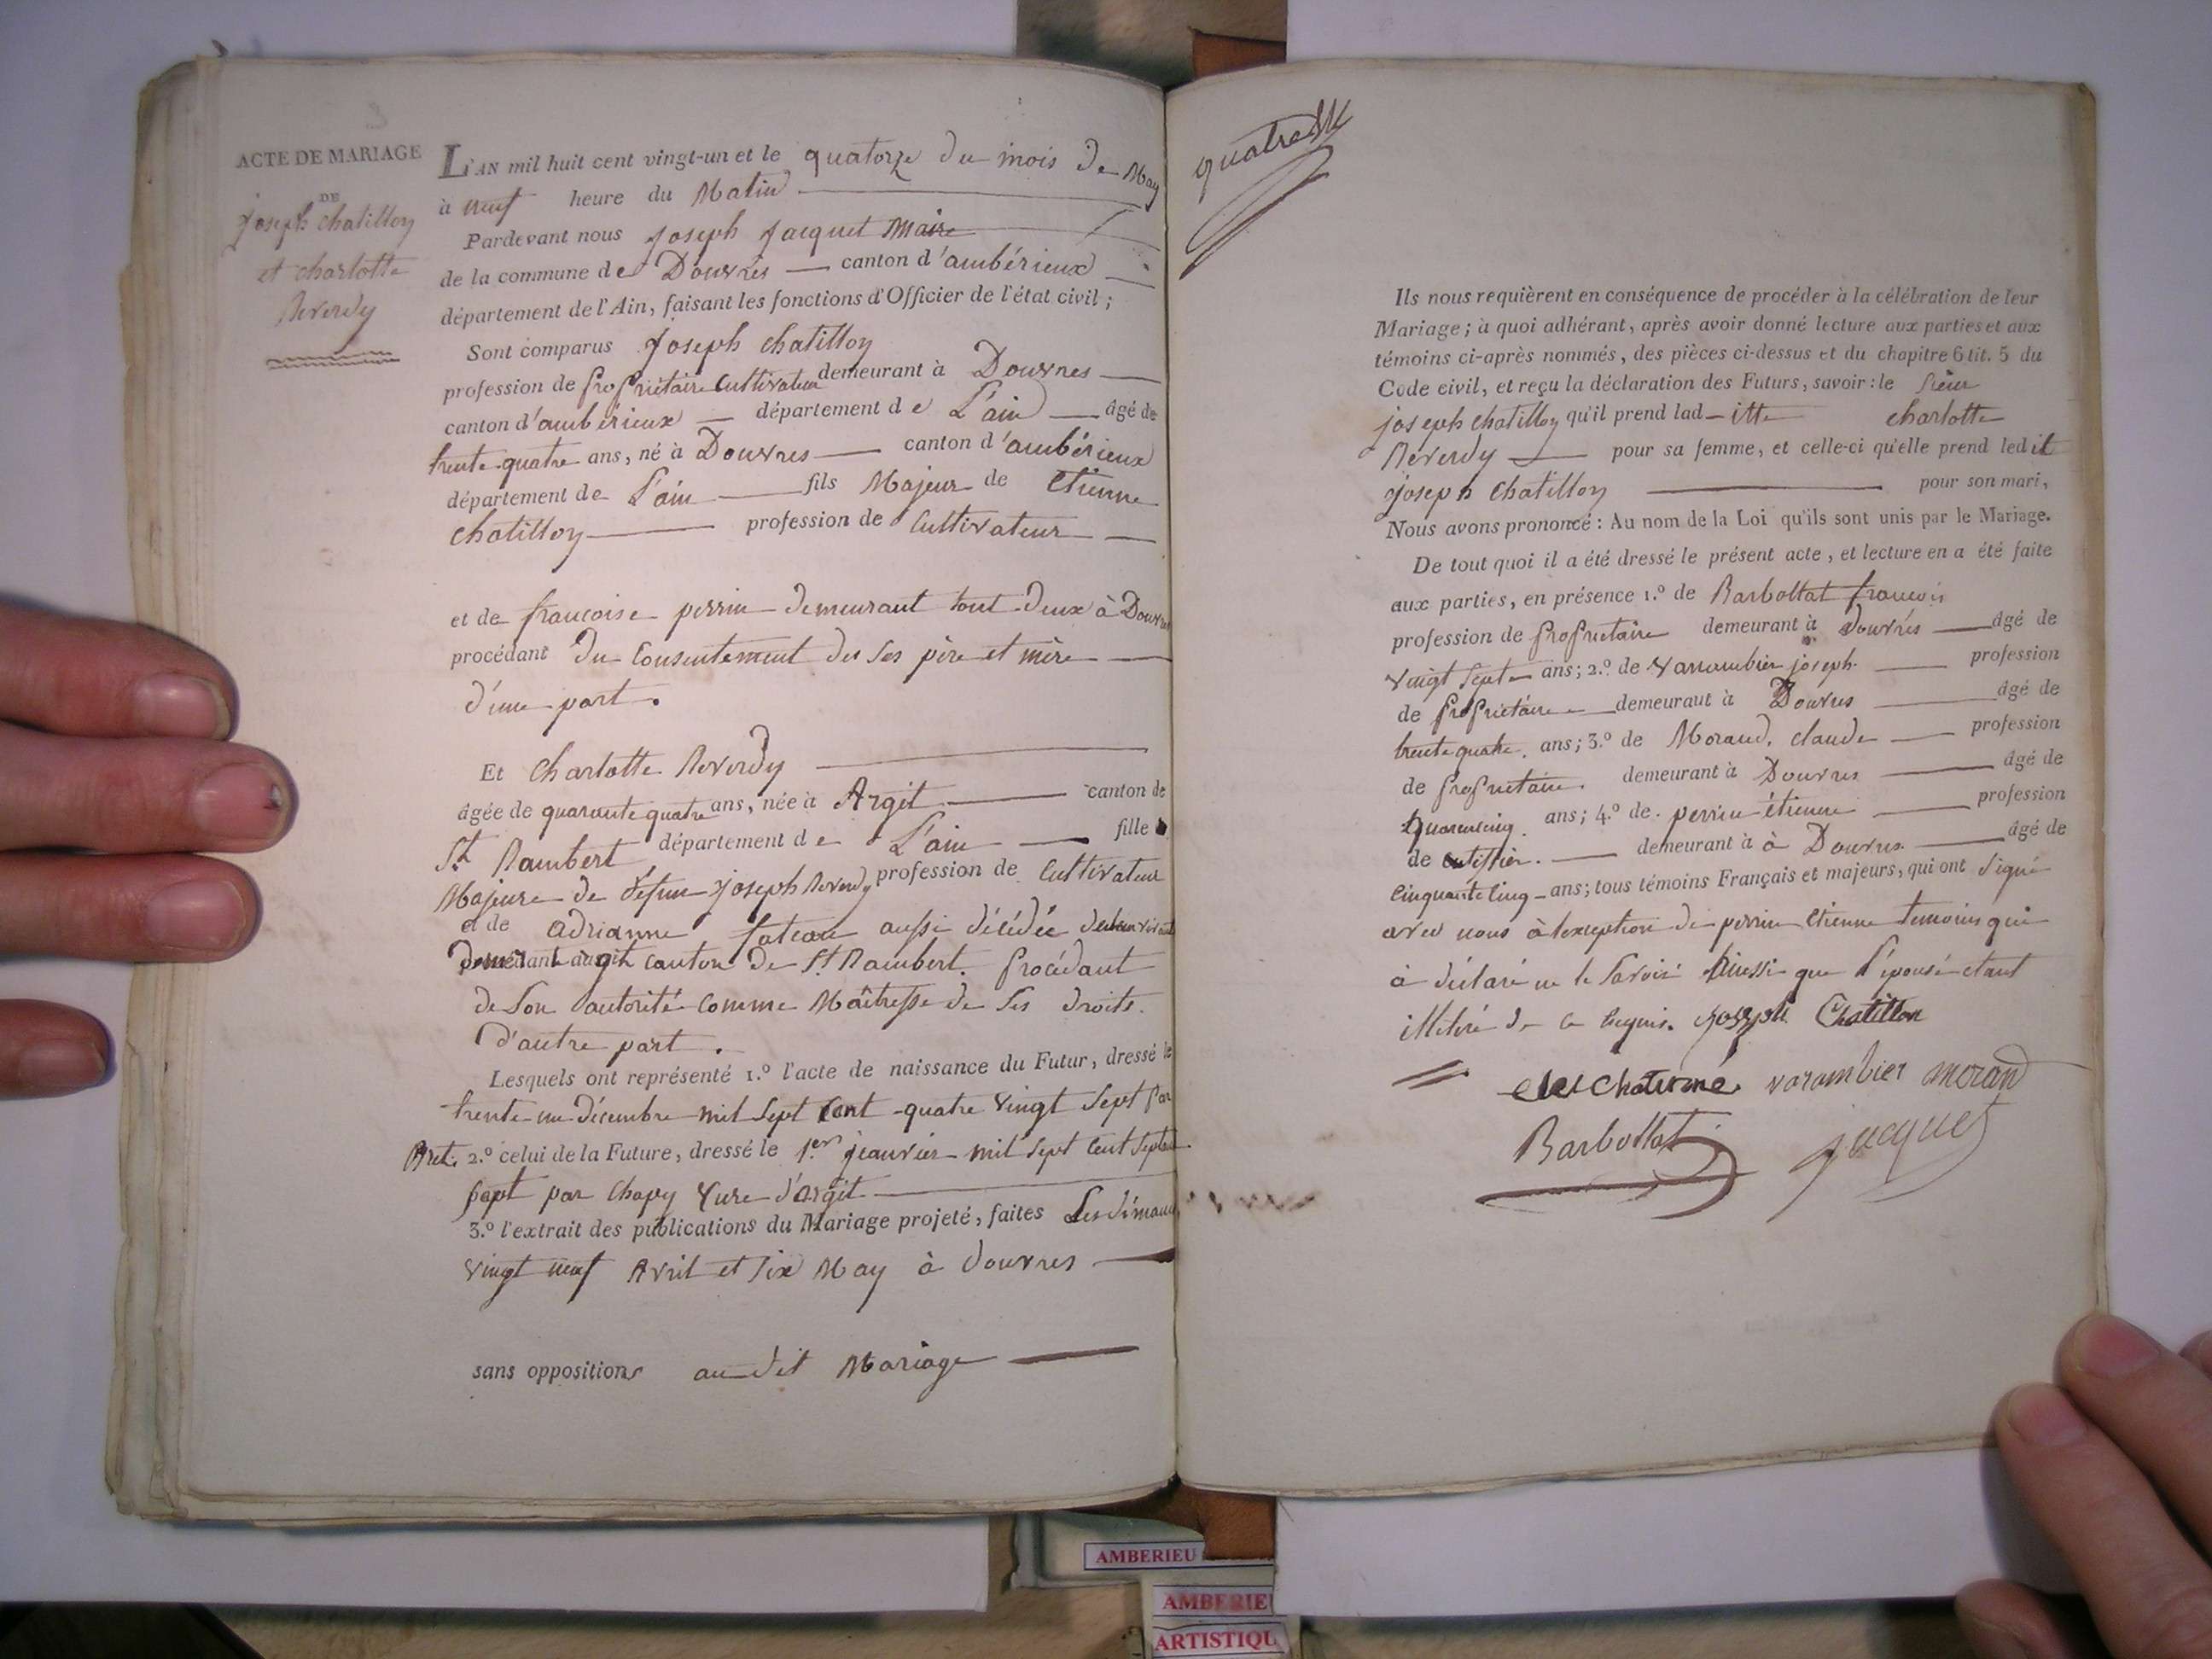 ACTE DE MARIAGE
DE
joseph chatillon
et charlotte
Reverdy
L'AN mil huit cent vingt-un et le quatorze du mois de May
à neuf heure du Matin
Pardevant nous joseph jacquet Maire
de la commune de Douvres canton d'ambérieux
département de l'Ain, faisant les fonctions d'Officier de l'état civil ;
Sont comparus joseph chatillon
profession de propriétaire Cultivateur demeurant à Douvres
canton d'ambérieux département de L'ain âgé de
trente-quatre ans, né à Douvres canton d'ambérieux
département de L'ain fils Majeur de Etienne
chatillon profession de Cultivateur
et de francoise perrin demeurant tout deux à Douvres
procédant du Consentement des ses père et mère
d'une part.
Et Charlotte Reverdy
âgée de quarante quatre ans, née à Argit canton de
St Rambert département de L'ain fille
Majeure de défun joseph Reverdy profession de Cultivateur
et de adrianne aussi décédée
canton de St Rambert. procédant
de son autorité comme Maîtresse de ses droits.
d'autre part.
Lesquels ont représenté 1.º l'acte de naissance du Futur, dressé le
trente-un décembre mil sept Cent quatre vingt sept par
2.º celui de la Future, dressé le 1.er jeanvier mil sept Cent
sept par Chapy Cure d'argit
3.º l'extrait des publications du Mariage projeté, faites Les
vingt neuf Avril et six May à Douvres
sans oppositions au dit Mariage
quatre
Ils nous requièrent en conséquence de procéder à la célébration de leur
Mariage ; à quoi adhérant, après avoir donné lecture aux parties et aux
témoins ci-après nommés, des pièces ci-dessus et du chapitre 6 tit. 5 du
Code civil, et reçu la déclaration des Futurs, savoir : le sieur
joseph chatillon qu'il prend lad-itte charlotte
Reverdy pour sa femme, et celle-ci qu'elle prend ledit
joseph Chatillon pour son mari,
Nous avons prononcé : Au nom de la Loi qu'ils sont unis par le Mariage.
De tout quoi il a été dressé le présent acte, et lecture en a été faite
aux parties, en présence 1.º de Barbottat francois
profession de propriétaire demeurant à Douvrés âgé de
vingt sept ans ; 2.º de Varrambier joseph profession
de propriétaire demeurant à Douvres âgé de
trente quatre. ans ; 3.º de Morand, claude profession
de propriétaire. demeurant à Douvres âgé de
ans ; 4.º de perrin étienne profession
de demeurant à à Douvres âgé de
Cinquante Cinq ans ; tous témoins Français et majeurs, qui ont signé
avec nous à l'exception de perrin Etienne temoins qui
à déclaré ne le savoir Ainssi que l'épouse étant
illitéré de ce Requis. joseph Chatillon
varambier morand
Barbottat jacquet
AMBERIEU
AMBERIE
ARTISTIQU